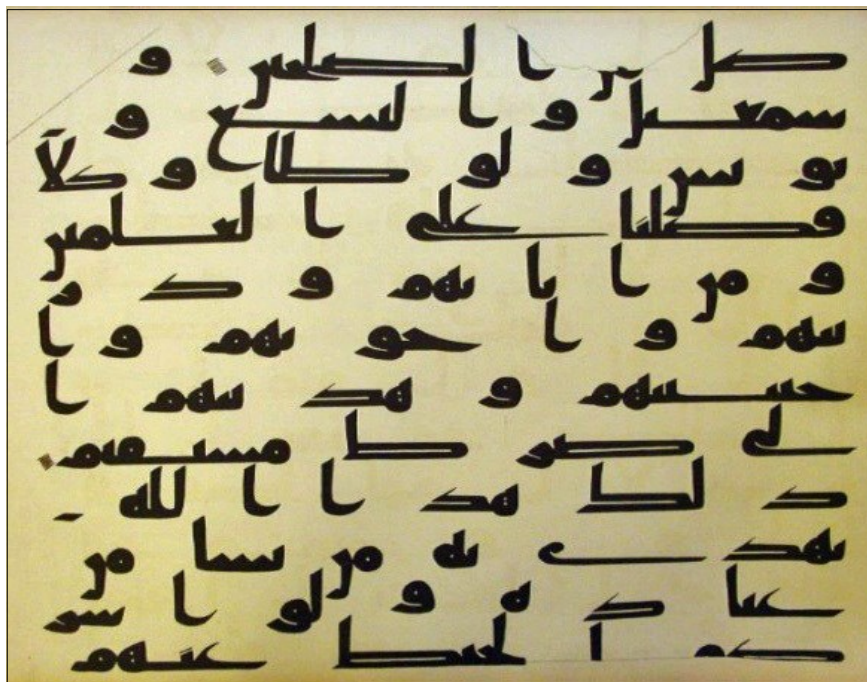 كل من الصلحين و
سمعيل واليسع و
يونس ولوطا وكلا
فضلنا على العلمين
ومن ابائهم وذر
يتهم واخونهم وا
جتبينهم وهدينهم ا
لى صرط مستقيم
ذلك هدا الله
يهدى به من يشا من
عباده ولو اشر
كوا لحبط عنهم